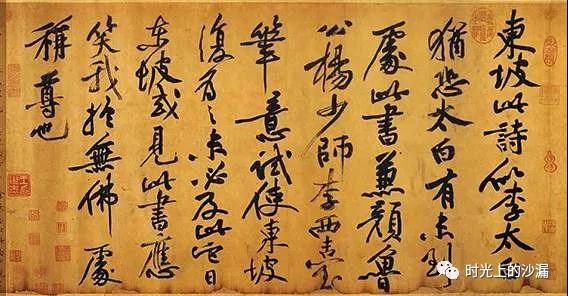 東坡此詩似李太白
猶恐太白有未到
處此書兼顏魯
公楊少師李西臺
筆意試使東坡
復為之未必及此它日
東坡或見此書應
笑我於無佛處
稱尊也
时光上的沙漏